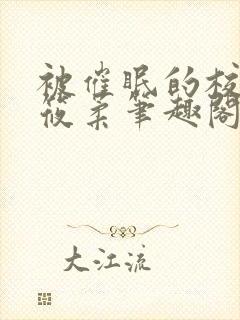 被催眠的校
筱柔笔趣阁
大江流